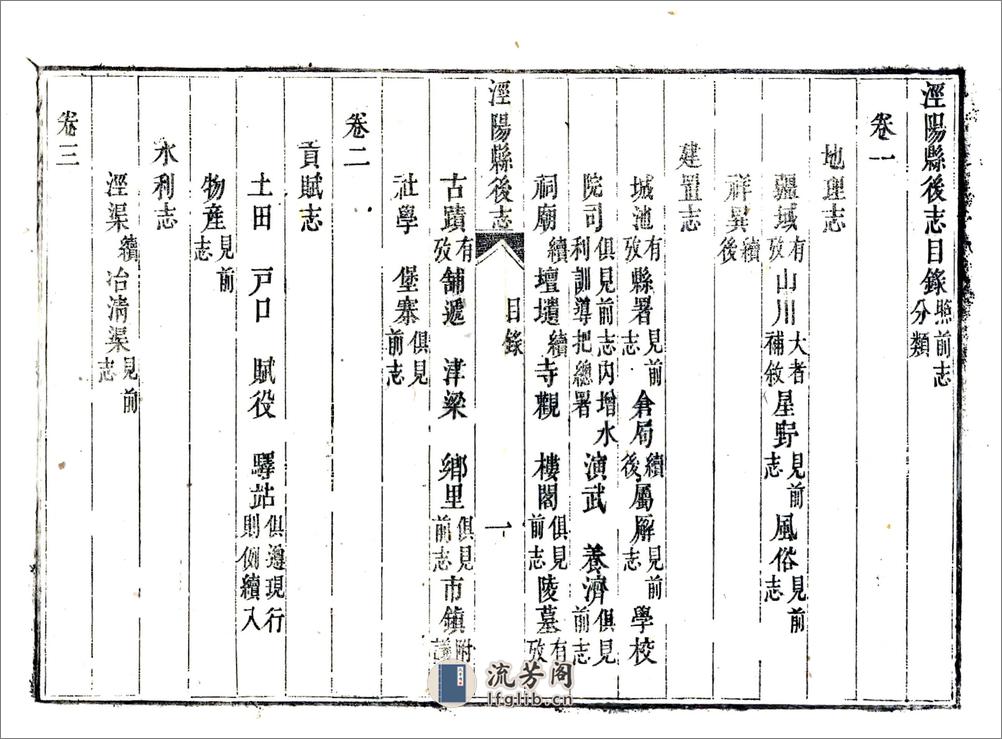 涇陽縣後志目錄照前志分類
卷一
地理志
疆域有攷山川大者補敘星野見前志風俗見前志
祥異續後
建置志
城池有攷縣署見前志倉局續後屬廨見前志學校
院司俱見前志內增水利訓導把總署演武養濟俱見前志
祠廟續壇壝續寺觀樓閣俱見前志陵墓有攷
涇陽縣後志
目錄
一
古蹟有攷舗遞津梁鄉里俱見前志市鎮附
社學堡寨俱見前志
卷二
貢賦志
土田戸口賦役驛站俱遵現行則例續入
物産見前志
水利志
涇渠續冶清渠見前志
卷三
流芳阁
lfglib.cn